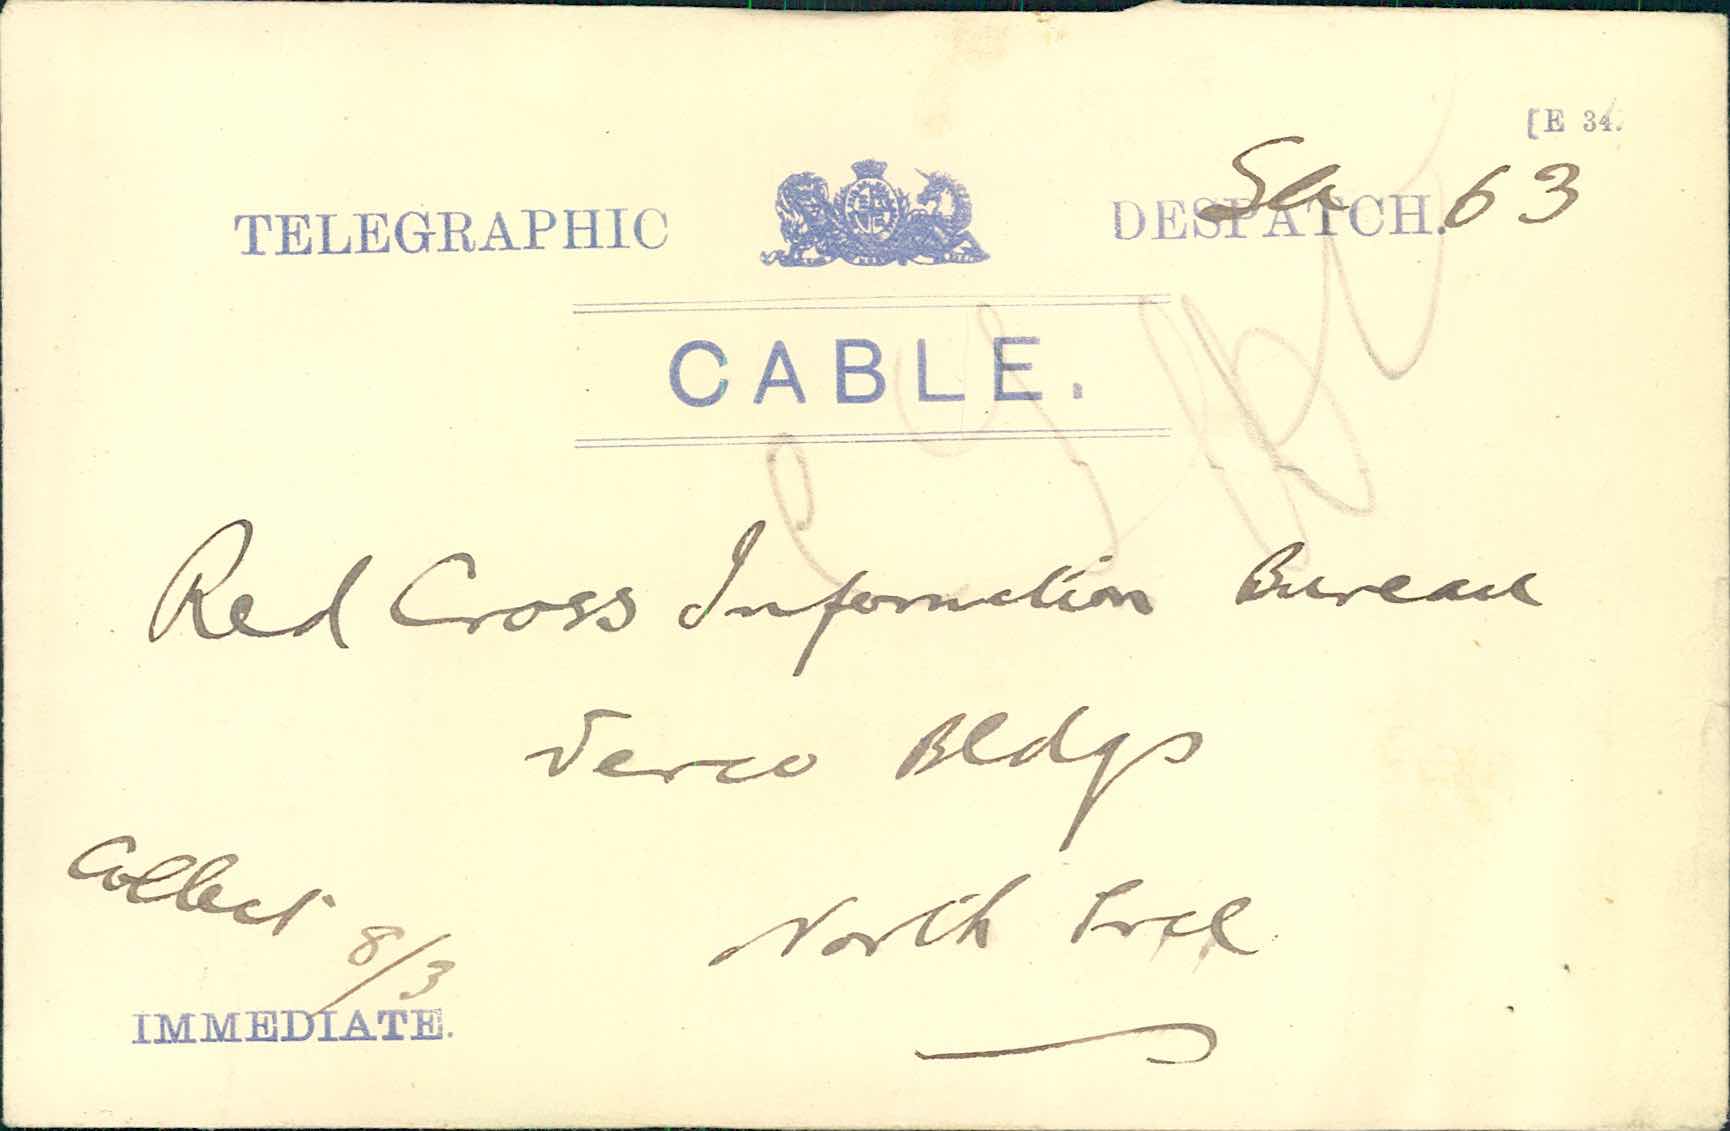 [E 34.
Sa 63
TELEGRAPHIC DESPATCH.
CABLE.
Red Cross Information Bureau
Verco Bldgs
Collect 8/3
North Trce
IMMEDIATE.